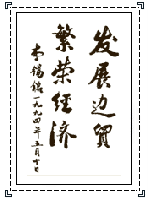 发展边贸
繁荣经济
李锡铭一九九四年五月十七日